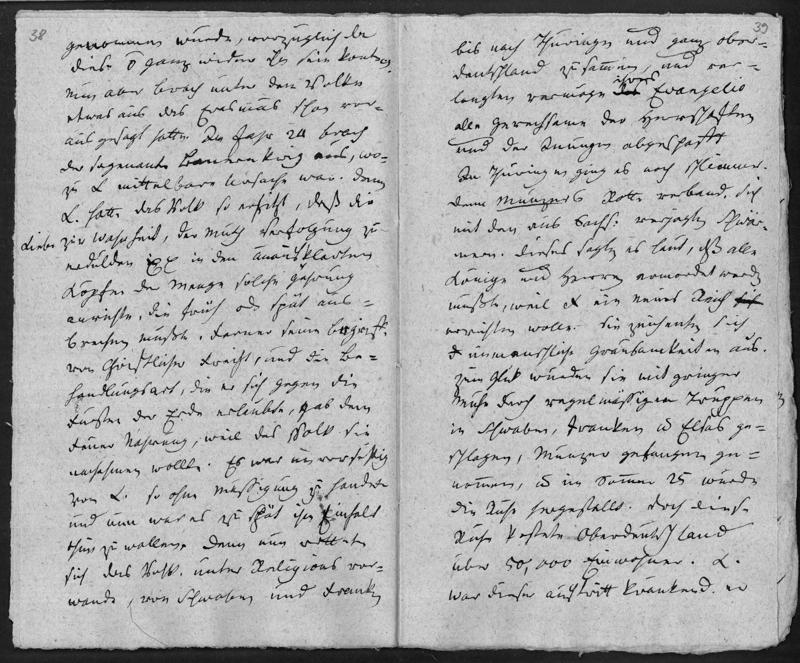 38
genommen wurde, vorzüglich da
dieses ganz wider
nun aber brach unter dem Volke
etwas aus das Erasmus schon vor-
aus gesagt hatte. Im Jahr 24 brach
der sogenante Bauernkrieg aus, wo-
zu L. mittelbare Ursache war. denn
L. hatte das Volk so erhizt, daß die
Liebe zur Wahrheit, der Muth Verfolgung zu
erdulden in den unaufgeklärten
Köpfen der Menge solche Gährung
anrichte, die früh od. spät aus-
brechen mußte. Ferner seine Begriffe
von Christlicher Freiheit, und die Be-
handlungsart, die er sich gegen die
Fürsten der Erde erlaubte, gab dem
Feuer Nahrung, weil das Volk sie
nachahmen wollte. Es war unvorsichtig
von L. so ohne Mässigung zu handeln
und nun war es zu spät ihm Einhalt
thun zu wollen. Denn nun rottete
sich das Volk unter Religions vor-
wande, von Schwaben und Franken
39
bis nach Thüringen und ganz ober-
deutschland zusammen, und ver-
langten vermöge ihres Evangelio
alle Gerechtsame der Herrschaften
und der abgeschaft
In Thüringen ging es noch schlimmer.
denn Münzers Rotte verband sich
mit den aus Sachs: verjagten Schwär-
mern. dieses sagten es laut, daß alle
Könige und Herren ermordet werden
müßten, weil ein neues Reich
errichten wolle. Sie zeichneten sich
unmenschliche Grausamkeiten aus.
zum Glük wurden sie mit geringer
Mühe durch regelmässigen Truppen
in Schwaben, Franken u Elsas ge-
schlagen, Münzer gefangen ge-
nommen, u im Sommer 25 wurde
die Ruhe hergestellt. Doch diese
Ruhe kostete Oberdeutschland
über 50,000 Einwohner. L.
war dieser auftritt kränkend. er